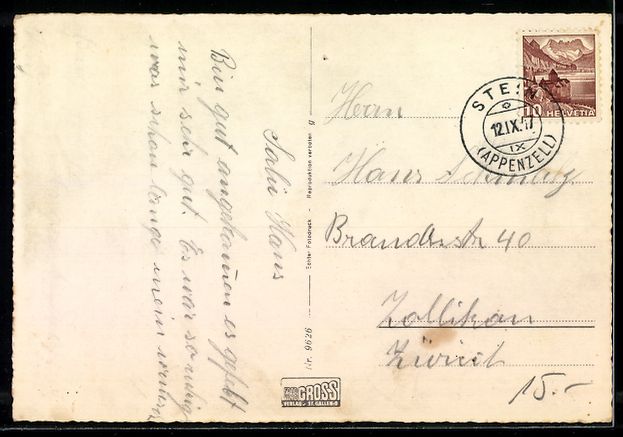 Salü Hans
Bin gut angekommen es gefällt
mir sehr gut. Es war so ruhig
war schon lange mein wunsch
Nr. 9626 Echter Fotodruck - Reproduktion verboten g
GROSS
VERLAG ST. GALLEN-O
HELVETIA
10
STEIN
12.IX.47
IX
(APPENZELL)
Herrn
Hans
Brandisstr 40
Zollikon
Zürich
15.-